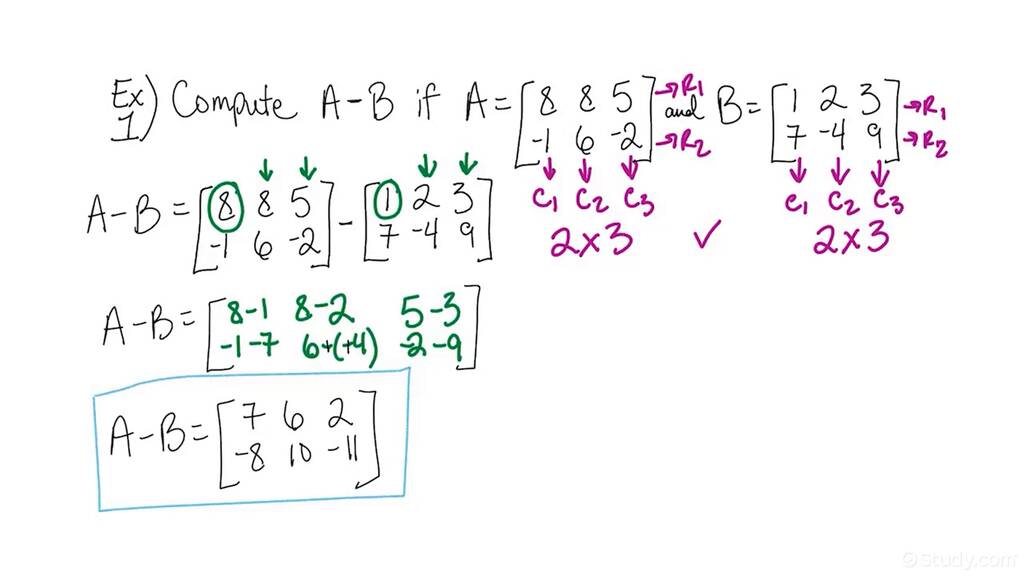 Ex 1) Compute A-B if A = [8 8 5 →R1 and B = [1 2 3 →R1
-1 6 -2] →R2 7 -4 9] →R2
↓ ↓ ↓ ↓ ↓ ↓
C1 C2 C3 C1 C2 C3
2×3 ✓ 2×3
↓ ↓ ↓ ↓
A-B = [8 8 5 - [1 2 3
-1 6 -2] 7 -4 9]
A-B = [8-1 8-2 5-3
-1-7 6+(+4) -2-9]
A-B = [7 6 2
-8 10 -11]
©Study.com